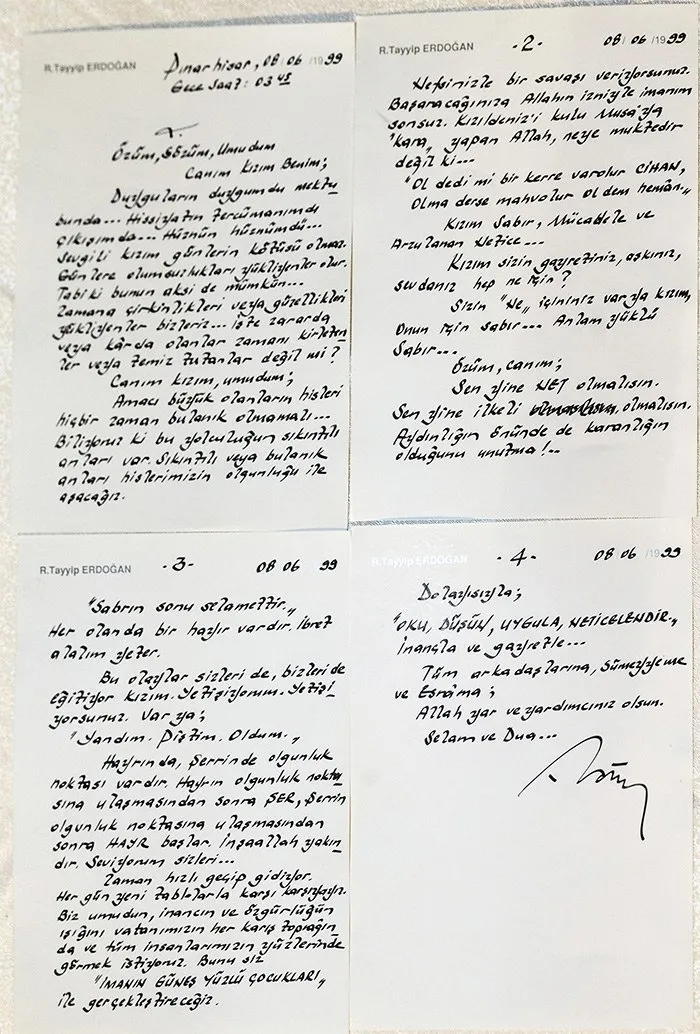 R.Tayyip ERDOĞAN
Pınarhisar, 08/06/1999
Gece Saat: 03 45
Özüm, Sözüm, Umudum
Canım Kızım Benim;
Duyguların duygumdu mektu
bunda... Hissiyatın tercümanımdı
çıkışımda... Hüznün hüznümdü...
Sevgili kızım günlerin kötüsü olmaz.
Günlere olumsuzlukları yükliyenler olur.
Tabiki bunun aksi de mümkün...
Zamana çirkinlikleri veya güzellikleri
yükliyenler bizleriz... İşte zararda
veya kârda olanlar zamanı kirleten
ler veya temiz tutanlar değil mi?
Canım kızım, umudum;
Amacı büyük olanların hisleri
hiçbir zaman bulanık olmamalı...
Biliyoruz ki bu yolculuğun sıkıntılı
anları var. Sıkıntılı veya bulanık
anları hislerimizin olgunluğu ile
aşacağız.
R.Tayyip ERDOĞAN -2- 08/06/1999
Nefsinizle bir savaşı veriyorsunuz.
Başaracağınıza Allahın izniyle imanım
sonsuz. Kızıldeniz'i kulu Musa'ya
"kara" yapan Allah, neye muktedir
değil ki...
"Ol dedi mi bir kerre varolur CİHAN,
Olma derse mahvolur ol dem hemân"
Kızım Sabır, Mücadele ve
Arzulanan Netice...
Kızım sizin gayretiniz, aşkınız,
sevdanız hep ne için?
Sizin "Ne" içininiz varya kızım,
Onun için sabır... Anlam yüklü
Sabır...
Özüm, canım;
Sen yine NET olmalısın.
Sen yine ilkeli olmalısın.
Aydınlığın önünde de karanlığın
olduğunu unutma!..
R.Tayyip ERDOĞAN -3- 08 06 99
"Sabrın sonu selamettir."
Her olanda bir hayır vardır. İbret
alalım yeter.
Bu olaylar sizleri de, bizleri de
eğitiyor kızım. Yetişiyorum. Yetişi
yorsunuz. Varya;
"Yandım. Piştim. Oldum."
Hayrında, Şerrinde olgunluk
noktası vardır. Hayrın olgunluk nokta
sına ulaşmasından sonra ŞER, Şerrin
olgunluk noktasına ulaşmasından
sonra HAYR başlar. İnşaallah yakın
dır. Seviyorum sizleri...
Zaman hızlı geçip gidiyor.
Her gün yeni tablolarla karşı karşıyayız.
Biz umudun, inancın ve özgürlüğün
ışığını vatanımızın her karış toprağın
da ve tüm insanlarımızın yüzlerinde
görmek istiyoruz. Bunu siz
"İMANIN GÜNEŞ YÜZLÜ ÇOCUKLARI"
ile gerçekleştireceğiz.
R.Tayyip ERDOĞAN -4- 08 06/1999
Dolayısıyla;
"OKU, DÜŞÜN, UYGULA, NETİCELENDİR."
İnançla ve gayretle...
Tüm arkadaşlarına, Sümeyyeme
ve Esrâma;
Allah yar ve yardımcınız olsun.
Selam ve Dua...